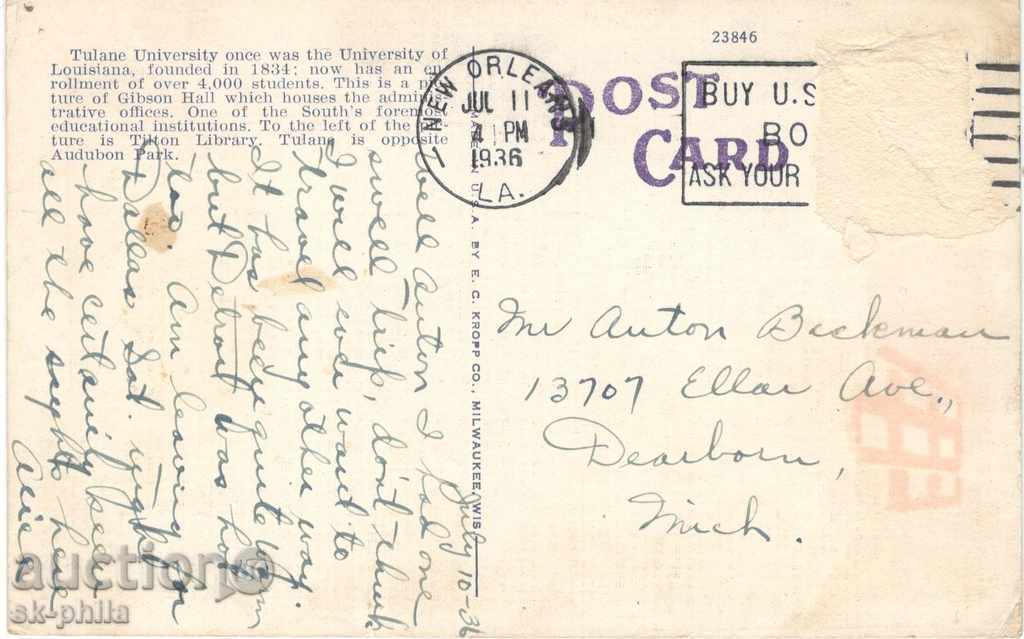 23846
Tulane University once was the University of
Louisiana, founded in 1834; now has an en-
rollment of over 4,000 students. This is a pic-
ture of Gibson Hall which houses the adminis-
trative offices. One of the South's foremost
educational institutions. To the left of the pic-
ture is Tilton Library. Tulane is opposite
Audubon Park.
NEW ORLEANS
JUL 11
4 PM
1936
LA.
POST
CARD
BUY U.S
BO
ASK YOUR
MADE IN U.S.A. BY E. C. KROPP CO., MILWAUKEE, WIS.
July 10-36
Well Anton I had one
swell trip, don't think
I will ever want to
travel any other way.
It has been quite warm
but Detroit was hot
too. Am leaving for
Dallas Sat. night
have certainly seen
all the sights here
Alice
Mr Anton Beckman
13707 Ellar Ave.,
Dearborn,
Mich.
auction
sk-phila